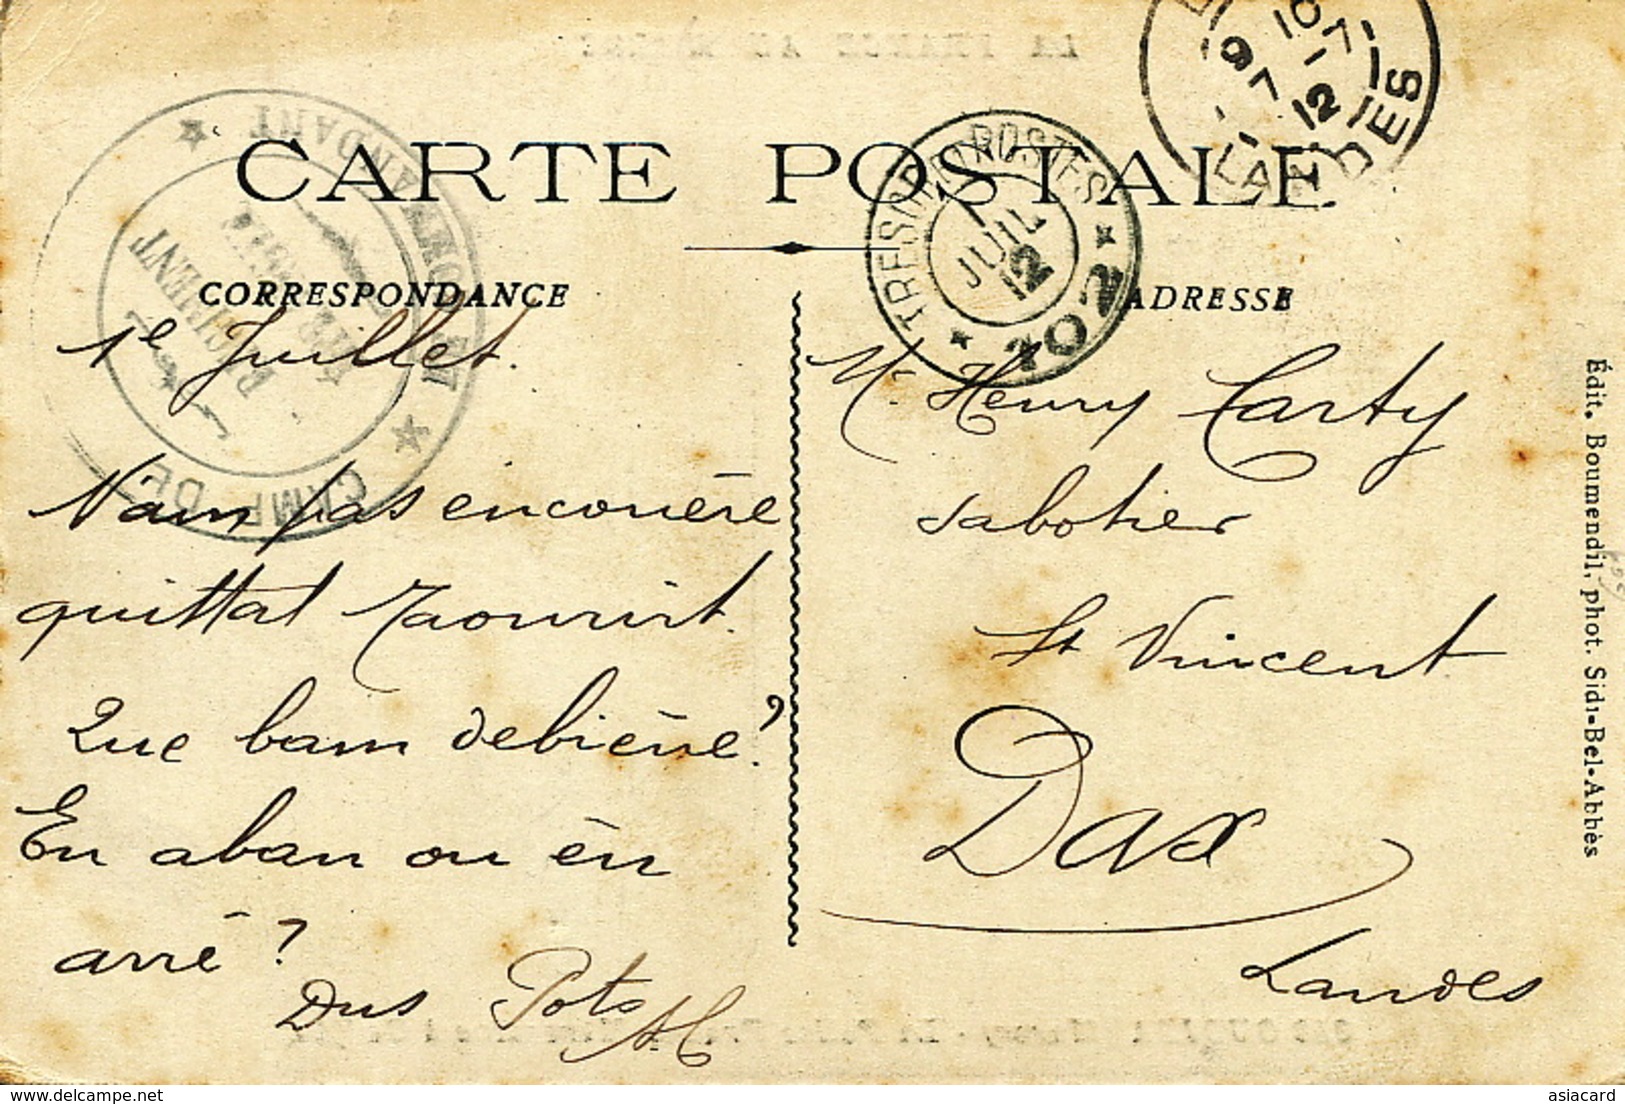 CARTE POSTALE
CORRESPONDANCE
ADRESSE
TRESOR ET POSTES
1
JUIL
12
202
9 10
7 - 7
12
LANDES
REGIMENT
CAMP DE
1e Juillet.
N'am pas encouère
quittat Taourirt.
Que bam debiëre?
En aban ou én
arré?
Dus Pots
M. Henry Carty
sabotier
St Vincent
Dax
Landes
Édit. Boumendil, phot. Sidi-Bel-Abbès
delcampe.net
asiacard